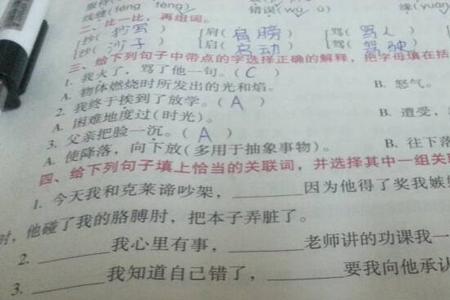 线缝(féng fèng)
错误(wù
缘(yuán
二、比一比，再组词。
抄(抄写) 肩(肩膀) 骂(骂人)
沙(沙子) 启(启动) 驾(驾驶)
三、给下列句子中带点的字选择正确的解释，把字母填在括
1. 我火了，骂了他一句。(C)
A. 物体燃烧时所发出的光和焰。 B. 怒气。
2. 我终于挨到了放学。(A)
A. 困难地度过(时光)。 B. 遭受，
3. 父亲把脸一沉。(A)
A. 使降落，向下放(多用于抽象事物)。 B. 往下落
四、给下列句子填上恰当的关联词，并选择其中一组关联
1. 今天我和克莱谛吵架，______因为他得了奖我嫉妒
时，他碰了我的胳膊肘，把本子弄脏了。
2. ______我心里有事，______老师讲的功课我一
3. ______我知道自己错了，______要我向他承认